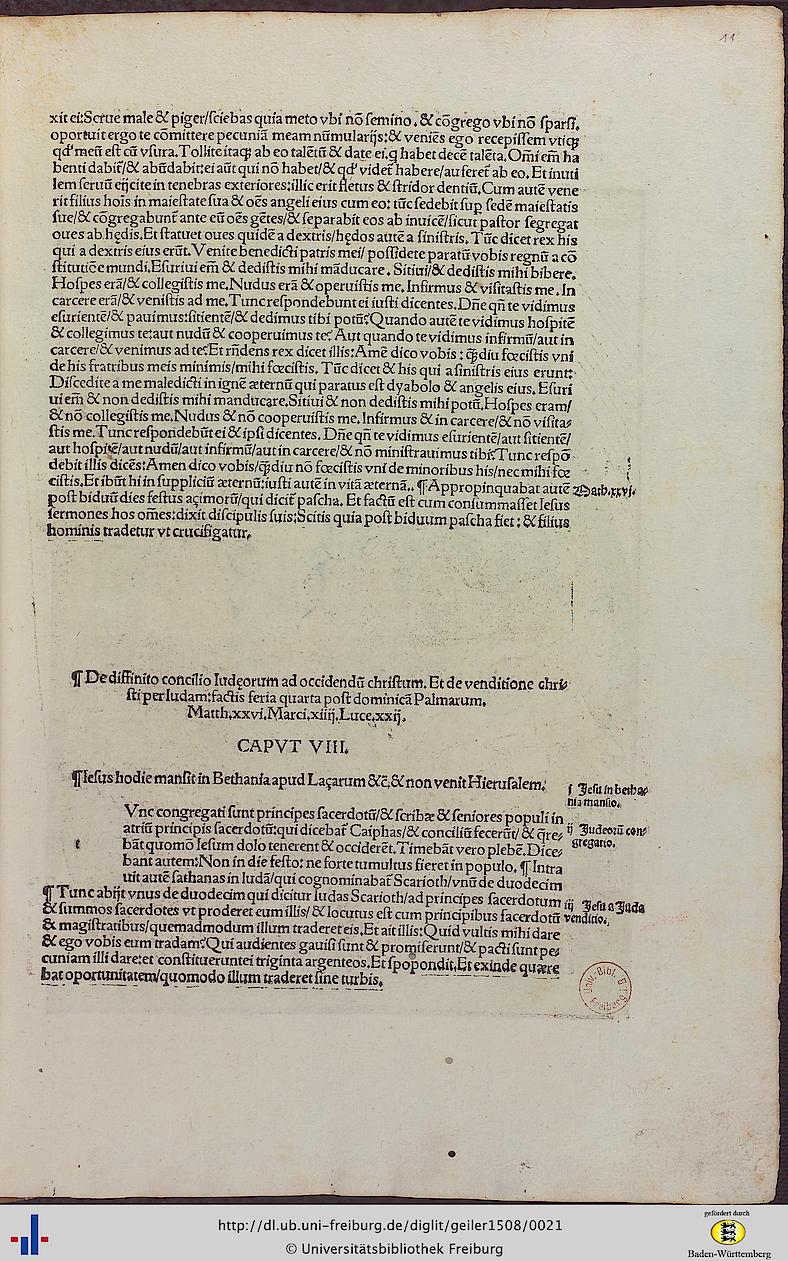 11
xit ei:Serue male & piger/sciebas quia meto vbi nõ semino.& cõgrego vbi nõ sparsi.
oportuit ergo te cõmittere pecuniã meam nũmularijs:& veniẽs ego recepissem vtiqꝫ
qđ meũ est cũ vsura.Tollite itaqꝫ ab eo talẽtũ & date ei.q̃ habet decẽ talẽta.Om̃i em̃ ha
benti dabit̃/& abũdabit:ei aũt qui nõ habet/& qđ videt̃ habere/auferet̃ ab eo.Et inuti
lem seruũ eijcite in tenebras exteriores:illic erit fletus & stridor dentiũ.Cum autẽ vene
rit filius hoĩs in maiestate sua & oẽs angeli eius cum eo: tũc sedebit sup sedẽ maiestatis
sue/& cõgregabunt̃ ante eũ oẽs gẽtes/& separabit eos ab inuicẽ/sicut pastor segregat
oues ab hędis.Et statuet oues quidẽ a dextris/hędos autẽ a sinistris. Tũc dicet rex his
qui a dextris eius erũt.Venite benedicti patris mei/ possidete paratũ vobis regnũ a cõ
stitutiõe mundi.Esuriui em̃ & dedistis mihi mãducare. Sitiui/& dedistis mihi bibere.
Hospes erã/& collegistis me.Nudus erã & operuistis me. Infirmus & visitastis me. In
carcere erã/& venistis ad me.Tunc respondebunt ei iusti dicentes. Dñe qñ te vidimus
esurientẽ/& pauimus:sitientẽ/& dedimus tibi potũ?Quando autẽ te vidimus hospitẽ
& collegimus te:aut nudũ & cooperuimus te? Aut quando te vidimus infirmũ/aut in
carcere/& venimus ad te?Et rñdens rex dicet illis:Amẽ dico vobis : qꝫdiu fœcistis vni
de his fratribus meis minimis/mihi fœcistis. Tũc dicet & his qui a sinistris eius erunt:
Discedite a me maledicti in ignẽ æternũ qui paratus est dyabolo & angelis eius. Esuri
ui em̃ & non dedistis mihi manducare.Sitiui & non dedistis mihi potũ.Hospes eram/
& nõ collegistis me.Nudus & nõ cooperuistis me.Infirmus & in carcere/& nõ visita⸗
stis me.Tunc respondebũt ei & ipsi dicentes. Dñe qñ te vidimus esurientẽ/aut sitientẽ/
aut hospitẽ/aut nudũ/aut infirmũ/aut in carcere/& nõ ministrauimus tibi?Tunc respõ
debit illis dicẽs:Amen dico vobis/qꝫdiu nõ fœcistis vni de minoribus his/nec mihi fœ
cistis.Et ibũt hi in suppliciũ æternũ:iusti autẽ in vitã æternã.. ¶ Appropinquabat autẽ
Math.xxvi.
post biduũ dies festus açimorũ/qui dicit̃ pascha. Et factũ est cum consummasset Iesus
sermones hos om̃es:dixit discipulis suis:Scitis quia post biduum pascha fiet : & filius
hominis tradetur vt crucifigatur.
¶ De diffinito concilio Iudęorum ad occidendũ christum. Et de venditione chri⸗
sti per Iudam:factis feria quarta post dominicã Palmarum.
Matth.xxvi.Marci.xiiij.Luce.xxij.
CAPVT VIII.
¶ Iesus hodie mansit in Bethania apud Laçarum &c̃.& non venit Hierusalem.
i Jesu in betha⸗
nia mansio.
t
Vnc congregati sunt principes sacerdotũ/& scribæ & seniores populi in
atriũ principis sacerdotũ:qui dicebat̃ Caiphas/& conciliũ fecerũt/ & q̃re⸗
ij Judeorũ con⸗
gregatio.
bãt quomõ Iesum dolo tenerent & occiderẽt.Timebãt vero plebẽ.Dice⸗
bant autem:Non in die festo: ne forte tumultus fieret in populo. ¶ Intra
uit autẽ sathanas in Iudã/qui cognominabat̃ Scarioth/vnũ de duodecim
¶ Tunc abijt vnus de duodecim qui dicitur Iudas Scarioth/ad principes sacerdotum
iij Jesu a Juda
venditio.
& summos sacerdotes vt proderet eum illis/ & locutus est cum principibus sacerdotũ
& magistratibus/quemadmodum illum traderet eis.Et ait illis:Quid vultis mihi dare
& ego vobis eum tradam?Qui audientes gauisi sunt & promiserunt/& pacti sunt pe⸗
cuniam illi dare:et constituerunt ei triginta argenteos.Et spopondit.Et exinde quære
bat oportunitatem/quomodo illum traderet sine turbis.
Univ.-Bibl.
Freiburg
http://dl.ub.uni-freiburg.de/diglit/geiler1508/0021
© Universitätsbibliothek Freiburg
gefördert durch
Baden-Württemberg